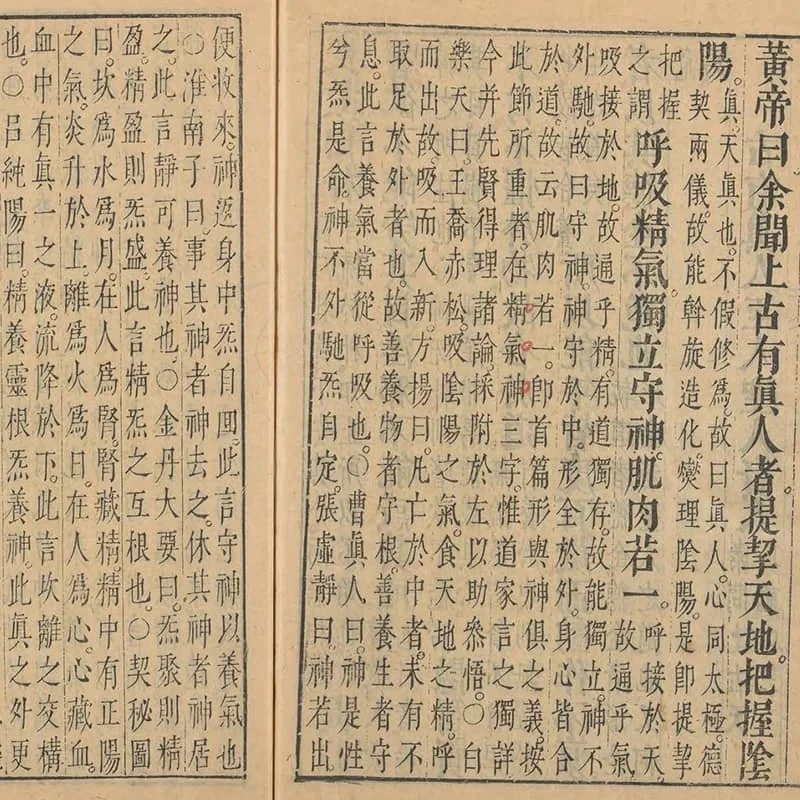 黃帝曰。余聞上古有眞人者。提挈天地。把握陰
陽。眞。天眞也。不假修爲。故曰眞人。心同太極。德
契兩儀。故能斡旋造化。燮理陰陽。是卽提挈
把握
之謂。呼吸精氣。獨立守神。肌肉若一。呼接於天。故通乎氣。
吸接於地。故通乎精。有道獨存。故能獨立。神不
外馳。故曰守神。神守於中。形全於外。身心皆合
於道。故云肌肉若一。卽首篇形與神俱之義。按
此節所重者。在精氣神三字。惟道家言之獨詳
今幷先賢得理諸論。採附於左以助叅悟。○白
樂天曰。王喬赤松。吸陰陽之氣。食天地之精。呼
而出故。吸而入新。方揚曰。凡亡於中者。未有不
取足於外者也。故善養物者守根。善養生者守
息。此言養氣當從呼吸也。○曹眞人曰。神是性
兮炁是命。神不外馳炁自定。張虛靜曰。神若出
便收來。神返身中炁自回。此言守神以養氣也
○淮南子曰。事其神者神去之。休其神者神居
之。此言靜可養神也。○金丹大要曰。炁聚則精
盈。精盈則炁盛。此言精炁之互根也。○契秘圖
曰。坎爲水爲月。在人爲腎。腎藏精。精中有正陽
之氣。炎升於上。離爲火爲日。在人爲心。心藏血。
血中有眞一之液。流降於下。此言坎離之交構
也。○呂純陽曰。精養靈根炁養神。此眞之外更